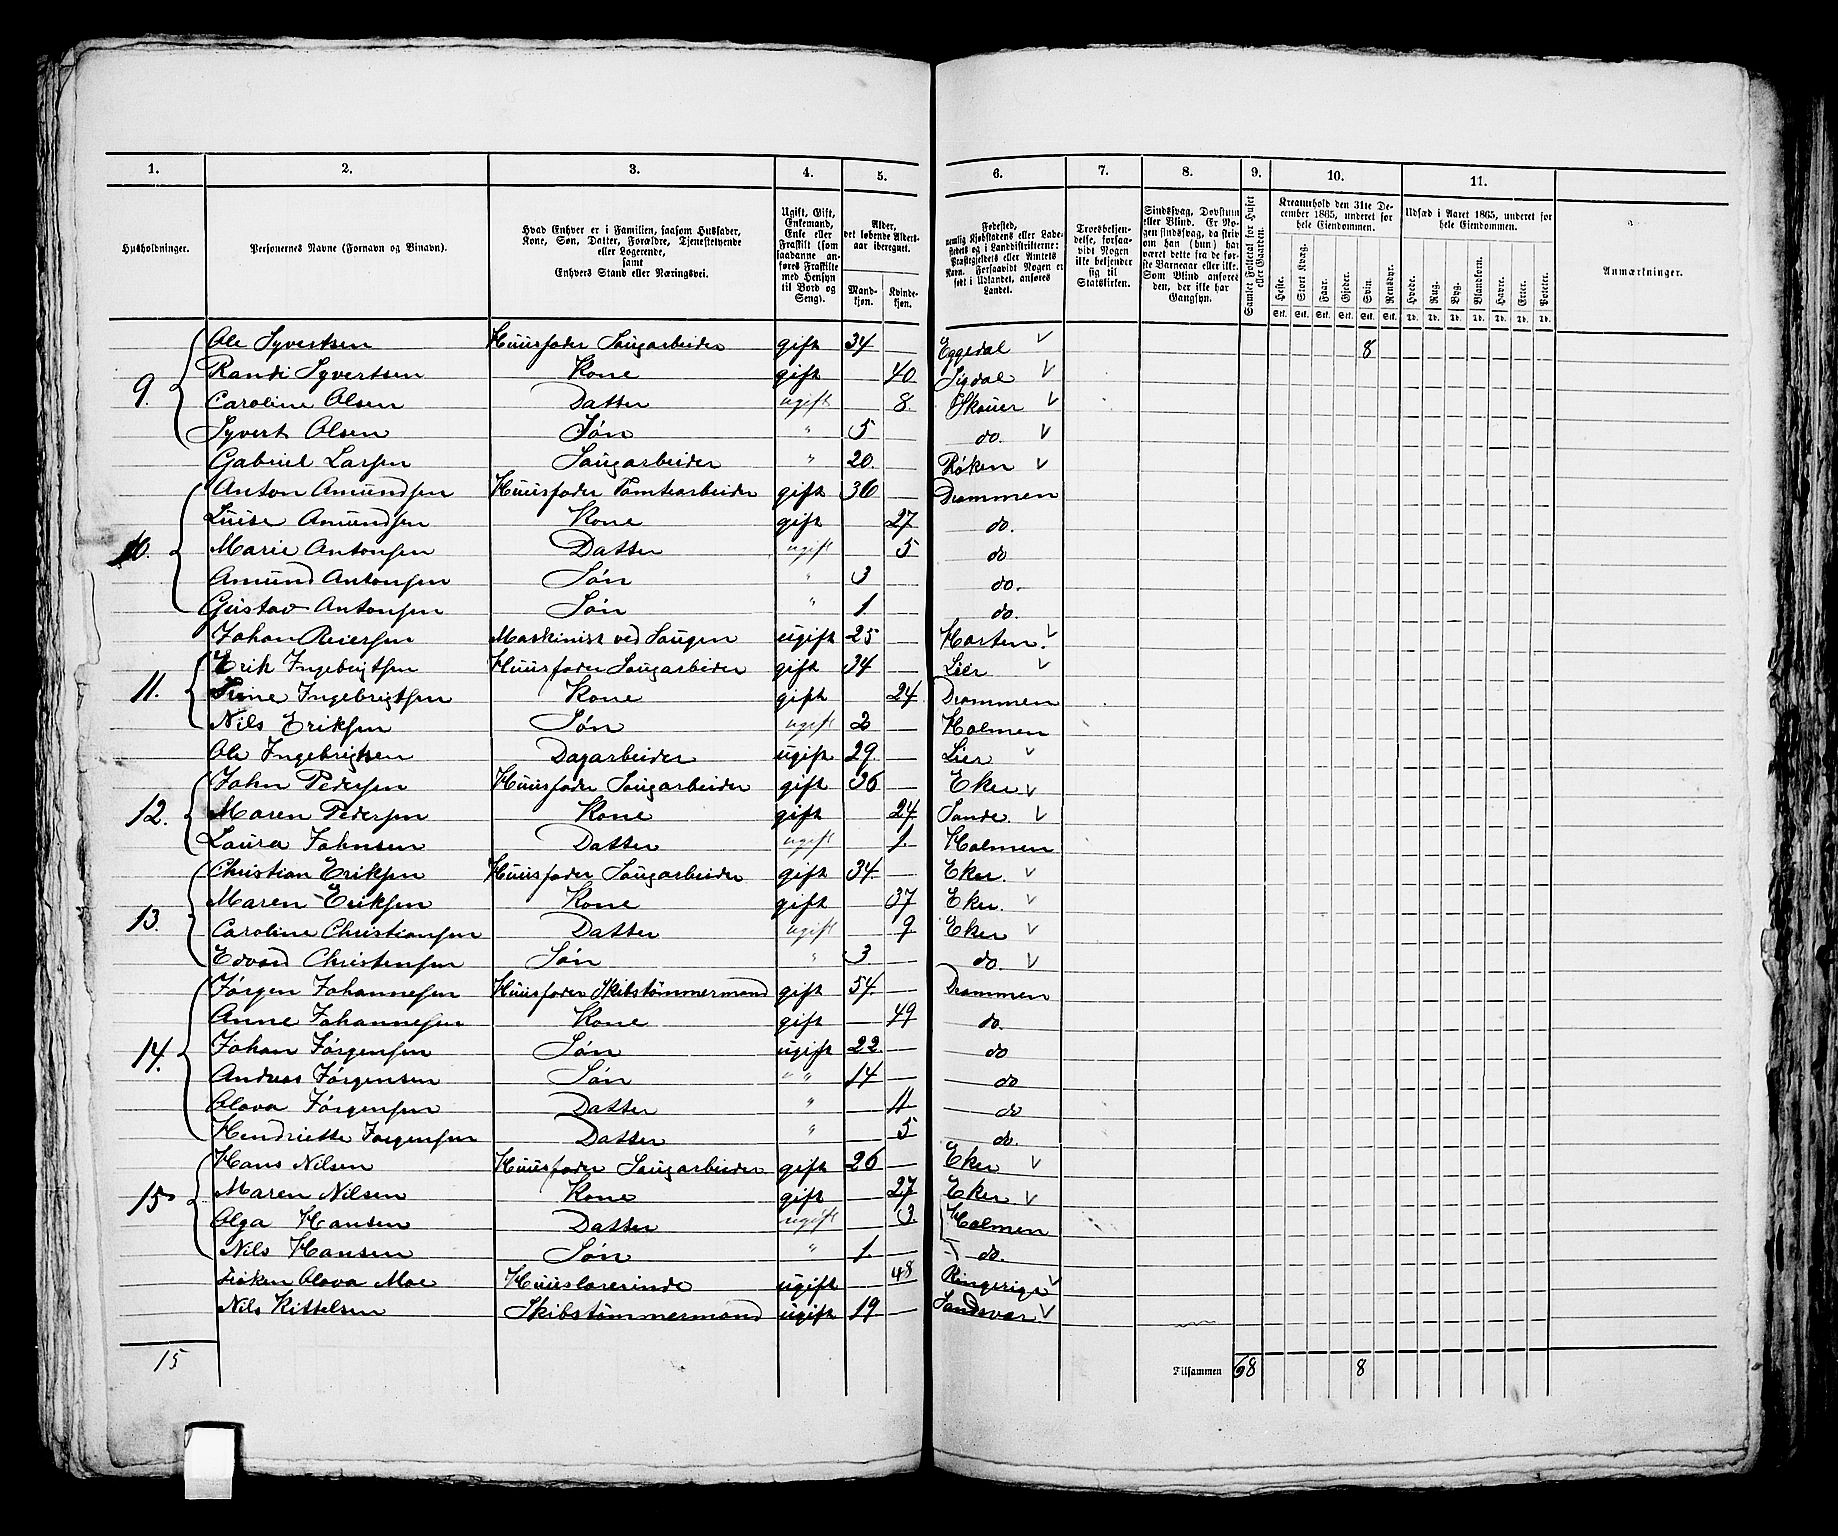 1. 2. 3. 4. 5. 6. 7. 8. 9. 10. 11.
Husholdninger.
Personernes Navne (Fornavn og Binavn).
Hvad Enhver er i Familien, saasom Husfader, Kone, Søn, Datter, Forældre, Tjenestetyende eller Logerende, samt Enhvers Stand eller Næringsvei.
Ugift, Gift, Enkemand, Enke eller Fraskilt (som saadanne anføres Fraskilte med Hensyn til Bord og Seng).
Alder, det løbende Alders-aar iberegnet.
Mand-kjøn. Kvinde-kjøn.
Fødested, nemlig Kjøbstadens eller Ladestedets og i Landdistrikterne: Præstegjeldets eller Amtets Navn. Forsaavidt Nogen er født i Udlandet, anføres Landet.
Troesbekjendelse, forsaavidt Nogen ikke bekjender sig til Statskirken.
Sindssvag, Døvstum eller Blind. Er Nogen sindssvag, da skrives om han (hun) har været dette fra de første Barneaar eller ikke. Som Blind anføres den, der ikke har Gangsyn.
Samlet Folketal for Huset eller Gaarden.
Kreaturhold den 31te December 1865, underet for hele Eiendommen.
Heste. Stort Kvæg. Faar. Gjeder. Svin. Rensdyr.
Stk. Stk. Stk. Stk. Stk. Stk.
Udsæd i Aaret 1865, underet for hele Eiendommen.
Hvede. Rug. Byg. Blandkorn. Havre. Erter. Poteter.
Td. Td. Td. Td. Td. Td. Td.
Anmærkninger.
Ole Syvertsen Huusfader Saugarbeider gift 34 Eggedal 8
9. Randi Syvertsen Kone gift 40 Sigdal
Caroline Olsen Datter ugift 8. Skouer
Syvert Olsen Søn " 5 do.
Gabriel Larsen Saugarbeider " 20. Røken
Anton Amundsen Huusfader Tomtearbeider gift 36 Drammen
Luise Amundsen Kone gift 27 do.
10. Marie Antonsen Datter ugift 5 do
Amund Antonsen Søn " 3 do.
Gustav Antonsen Søn " 1 do.
Johan Reiersen Maskinist ved Saugen ugift 25 Horten.
Erik Ingebrigtsen Huusfader Saugarbeider gift 34 Lier
11. Trine Ingebrigtsen Kone gift 24 Drammen
Nils Eriksen Søn ugift 2 Holmen
Ole Ingebrigtsen Dagarbeider ugift 29. Lier
John Pedersen Huusfader Saugarbeider gift 36 Eker
12. Maren Pedersen Kone gift 24 Sande.
Laura Johnsen Datter ugift 1. Holmen
Christian Eriksen Huusfader Saugarbeider gift 34. Eker.
Maren Eriksen Kone gift 37 Eker.
13. Caroline Christiansen Datter ugift 9 Eker
Edvard Christensen Søn " 3 do.
Jørgen Johannesen Huusfader Skibstømmermand gift 54. Drammen
Anne Johannesen Kone gift 49 do.
14. Johan Jørgensen Søn ugift 22. do
Andreas Jørgensen Søn " " 14 do
Olava Jørgensen Datter " 11 do
Hendriette Jørgensen Datter " 5 do.
Hans Nilsen Huusfader Saugarbeider gift 26 Eker
15 Maren Nilsen Kone gift 27 Eker
Olga Hansen Datter ugift 3. Holmen
Nils Hansen Søn " 1. do.
Frøken Olava Moe Huuslærerinde ugift 48 Ringerige
Nils Kittelsen Skibstømmermand ugift 19 Sandsvær.
15 Tilsammen 68 8